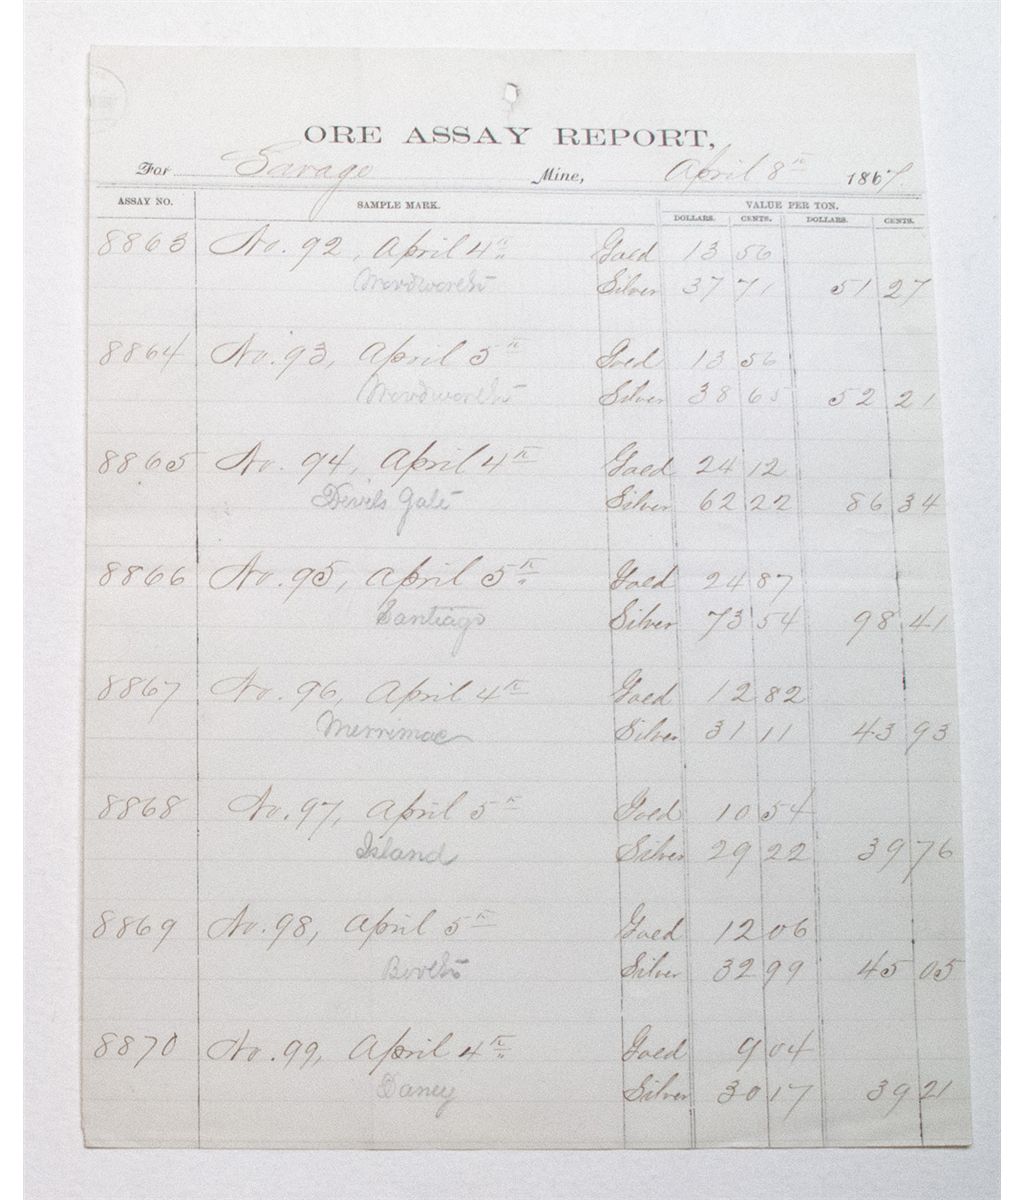 ORE ASSAY REPORT,
For Savage Mine, April 8th 1867.
ASSAY NO. SAMPLE MARK. VALUE PER TON.
DOLLARS. CENTS. DOLLARS. CENTS.
8863 No. 92, April 4th Gold 13 56
Woodworths Silver 37 71 51 27
8864 No. 93, April 5th Gold 13 56
Woodworths Silver 38 65 52 21
8865 No. 94, April 4th Gold 24 12
Devils Gate Silver 62 22 86 34
8866 No. 95, April 5th Gold 24 87
Santiago Silver 73 54 98 41
8867 No. 96, April 4th Gold 12 82
Merrimac Silver 31 11 43 93
8868 No. 97, April 5th Gold 10 54
Island Silver 29 22 39 76
8869 No. 98, April 5th Gold 12 06
Silver 32 99 45 05
8870 No. 99, April 4th Gold 9 04
Daney Silver 30 17 39 21